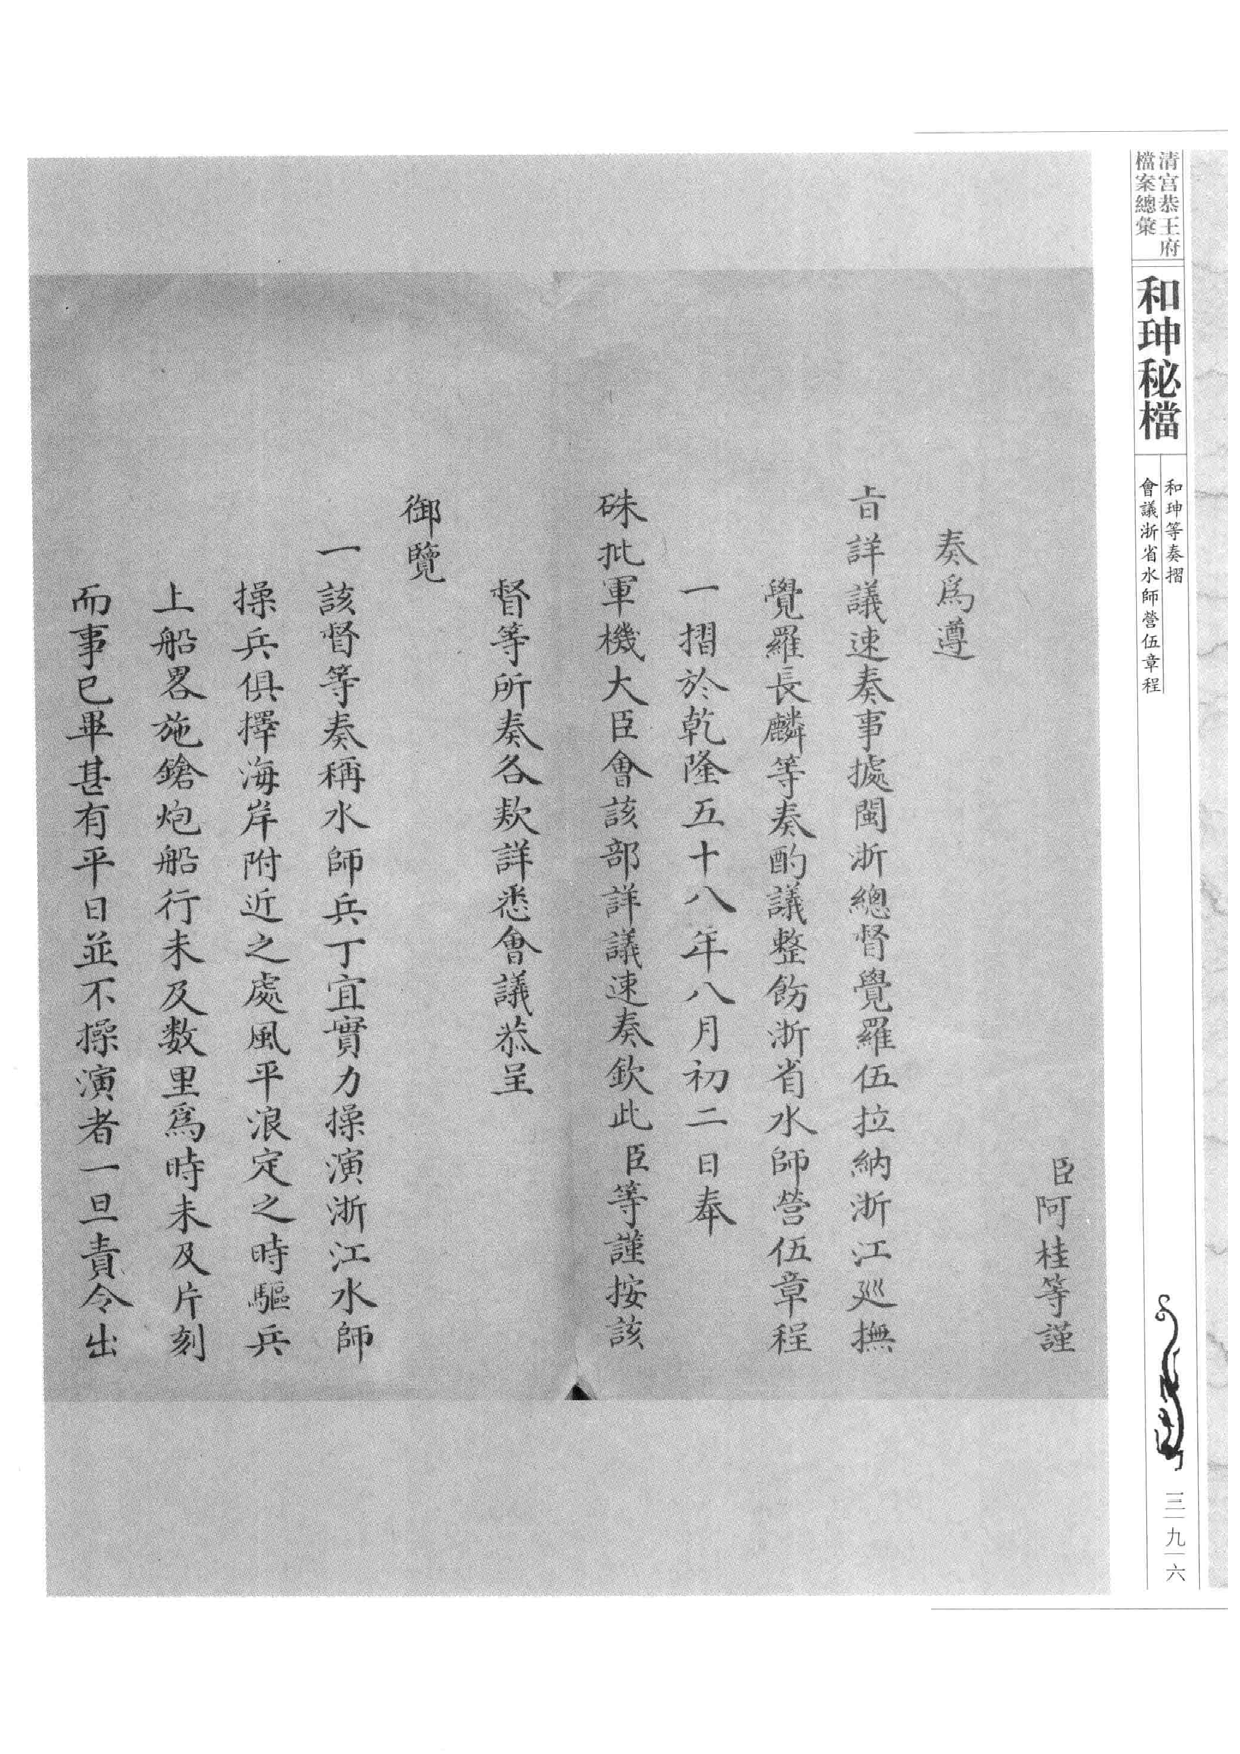 清宮恭王府
檔案總彙
和珅秘檔
和珅等奏摺
會議浙省水師營伍章程
三九六
臣阿桂等謹
奏爲遵
旨詳議速奏事據閩浙總督覺羅伍拉納浙江廵撫
覺羅長麟等奏酌議整飭浙省水師營伍章程
一摺於乾隆五十八年八月初二日奉
硃批軍機大臣會該部詳議速奏欽此臣等謹按該
督等所奏各欵詳悉會議恭呈
御覽
一該督等奏稱水師兵丁宜實力操演浙江水師
操兵俱擇海岸附近之處風平浪定之時驅兵
上船畧施鎗炮船行未及数里爲時未及片刻
而事已畢甚有平日並不操演者一旦責令出